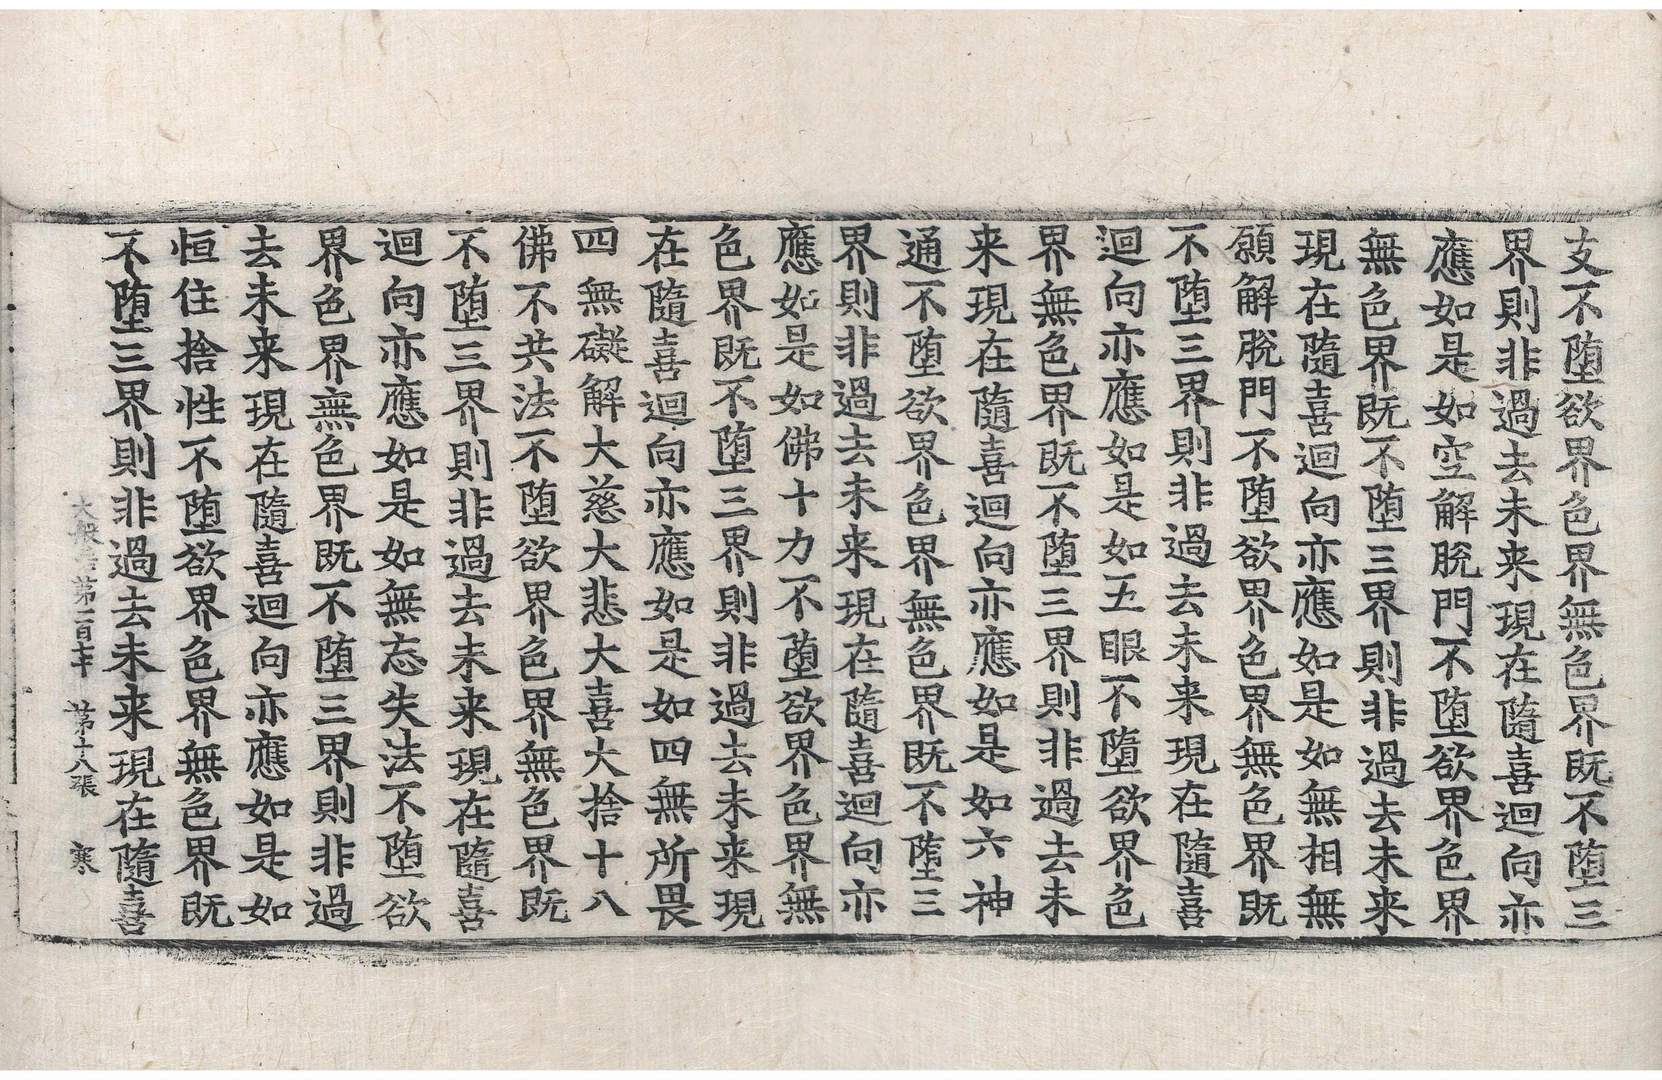 支不堕欲界色界無色界既不堕三
界則非過去未来現在隨喜迴向亦
應如是如空解脫門不堕欲界色界
無色界既不堕三界則非過去未来
現在隨喜迴向亦應如是如無相無
願解脫門不堕欲界色界無色界既
不堕三界則非過去未来現在隨喜
迴向亦應如是如五眼不堕欲界色
界無色界既不堕三界則非過去未
来現在隨喜迴向亦應如是如六神
通不堕欲界色界無色界既不堕三
界則非過去未来現在隨喜迴向亦
應如是如佛十力不堕欲界色界無
色界既不堕三界則非過去未来現
在隨喜迴向亦應如是如四無所畏
四無礙解大慈大悲大喜大捨十八
佛不共法不堕欲界色界無色界既
不堕三界則非過去未来現在隨喜
迴向亦應如是如無忘失法不堕欲
界色界無色界既不堕三界則非過
去未来現在隨喜迴向亦應如是如
恒住捨性不堕欲界色界無色界既
不堕三界則非過去未来現在隨喜
大般若第一百七十 第十八張 寒